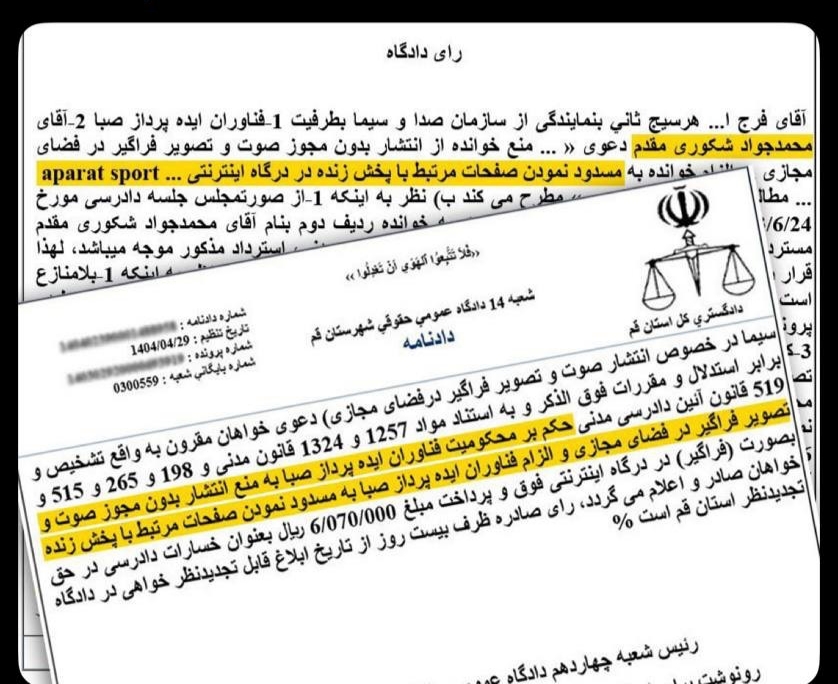 رای دادگاه
آقای فرج ا... هرسیج ثاني بنمایندگی از سازمان صدا و سیما بطرفیت 1-فناوران ایده پرداز صبا 2-آقای
محمدجواد شکوری مقدم دعوی « ... منع خوانده از انتشار بدون مجوز صوت و تصویر فراگیر در فضای
مجازی خوانده به مسدود نمودن صفحات مرتبط با پخش زنده در درگاه اینترنتی ... aparat sport
... مطرح می کند ب) نظر به اینکه 1-از صورتمجلس جلسه دادرسی مورخ
6/24/ خوانده ردیف دوم بنام آقای محمدجواد شکوری مقدم
مسترد استرداد مذکور موجه میباشد، لهذا
قرار اینکه 1-بلامنازع
است
«فَلا تَتَّبِعُوا الْهَوَى أَنْ تَعْدِلُوا»
دادگستري کل استان قم
شعبه 14 دادگاه عمومي حقوقي شهرستان قم
دادنامه
شماره دادنامه :
تاریخ تنظیم : 1404/04/29
شماره پرونده :
شماره بایگاني شعبه : 0300559
سیما در خصوص انتشار صوت و تصویر فراگیر درفضای مجازی) دعوی خواهان مقرون به واقع تشخیص و
برابر استدلال و مقررات فوق الذکر و به استناد مواد 1257 و 1324 قانون مدنی و 198 و 265 و 515 و
519 قانون آئین دادرسی مدنی حکم بر محکومیت فناوران ایده پرداز صبا به منع انتشار بدون مجوز صوت و
تصویر فراگیر در فضای مجازی و الزام فناوران ایده پرداز صبا به مسدود نمودن صفحات مرتبط با پخش زنده
بصورت (فراگیر) در درگاه اینترنتی فوق و پرداخت مبلغ 6/070/000 ریال بعنوان خسارات دادرسی در حق
خواهان صادر و اعلام می گردد، رای صادره ظرف بیست روز از تاریخ ابلاغ قابل تجدیدنظر خواهی در دادگاه
تجدیدنظر استان قم است %
رئیس شعبه چهاردهم دادگاه
رونوشت